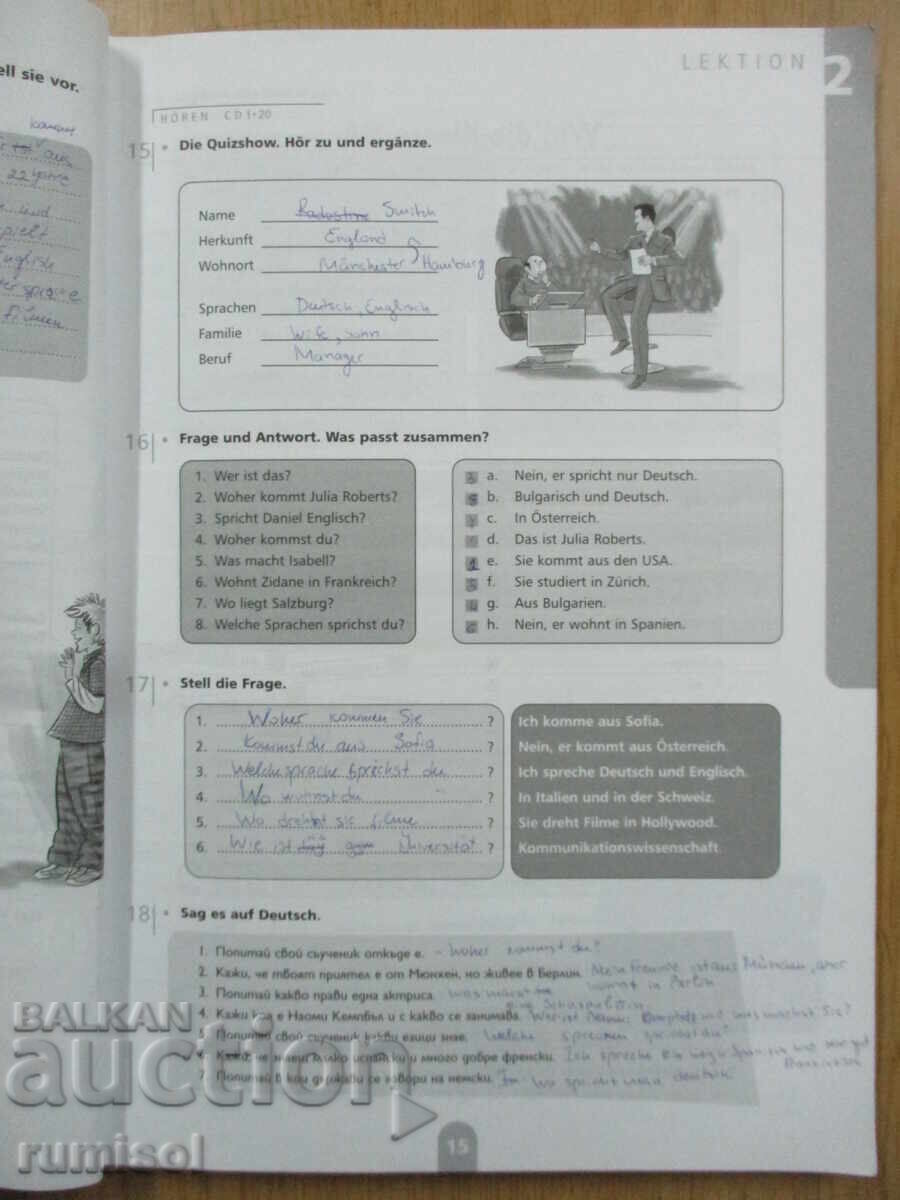 ell sie vor.
kommt
aus
22 Jahre
und
spielt
English
sprache
Filmen
LEKTION 2
HÖREN CD 1•20
15 • Die Quizshow. Hör zu und ergänze.
Name Smith
Herkunft England
Wohnort Manchester Hamburg
Sprachen Deutsch, Englisch
Familie Wife, sohn
Beruf Manager
16 • Frage und Antwort. Was passt zusammen?
1. Wer ist das?
2. Woher kommt Julia Roberts?
3. Spricht Daniel Englisch?
4. Woher kommst du?
5. Was macht Isabell?
6. Wohnt Zidane in Frankreich?
7. Wo liegt Salzburg?
8. Welche Sprachen sprichst du?
a. Nein, er spricht nur Deutsch.
b. Bulgarisch und Deutsch.
c. In Österreich.
d. Das ist Julia Roberts.
e. Sie kommt aus den USA.
f. Sie studiert in Zürich.
g. Aus Bulgarien.
h. Nein, er wohnt in Spanien.
17 • Stell die Frage.
1. Woher kommen Sie ?
2. Kommst du aus Sofia ?
3. Welche sprache sprechst du ?
4. Wo wohnst du ?
5. Wo dreht sie filme ?
6. Wie ist Universität ?
Ich komme aus Sofia.
Nein, er kommt aus Österreich.
Ich spreche Deutsch und Englisch.
In Italien und in der Schweiz.
Sie dreht Filme in Hollywood.
Kommunikationswissenschaft.
18 • Sag es auf Deutsch.
1. Попитай свой съученик откъде е. - Woher kommst du?
2. Кажи, че твоят приятел е от Мюнхен, но живее в Берлин. Mein Freunde ist aus München, aber
wohnt in Berlin
3. Попитай какво прави една актриса. was macht
eine Schauspielerin
4. Кажи коя е Наоми Кембъл и с какво се занимава. Wer ist Naomi und was machst Sie?
5. Попитай свой съученик какви езици знае. Welche sprachen du
6. Кажи, че знаеш малко испански и много добре френски. Ich spreche ein und sehr gut
7. Попитай в кои държави се говори на немски. Wo spricht man deutsch
BALKAN
auction
rumisol
15